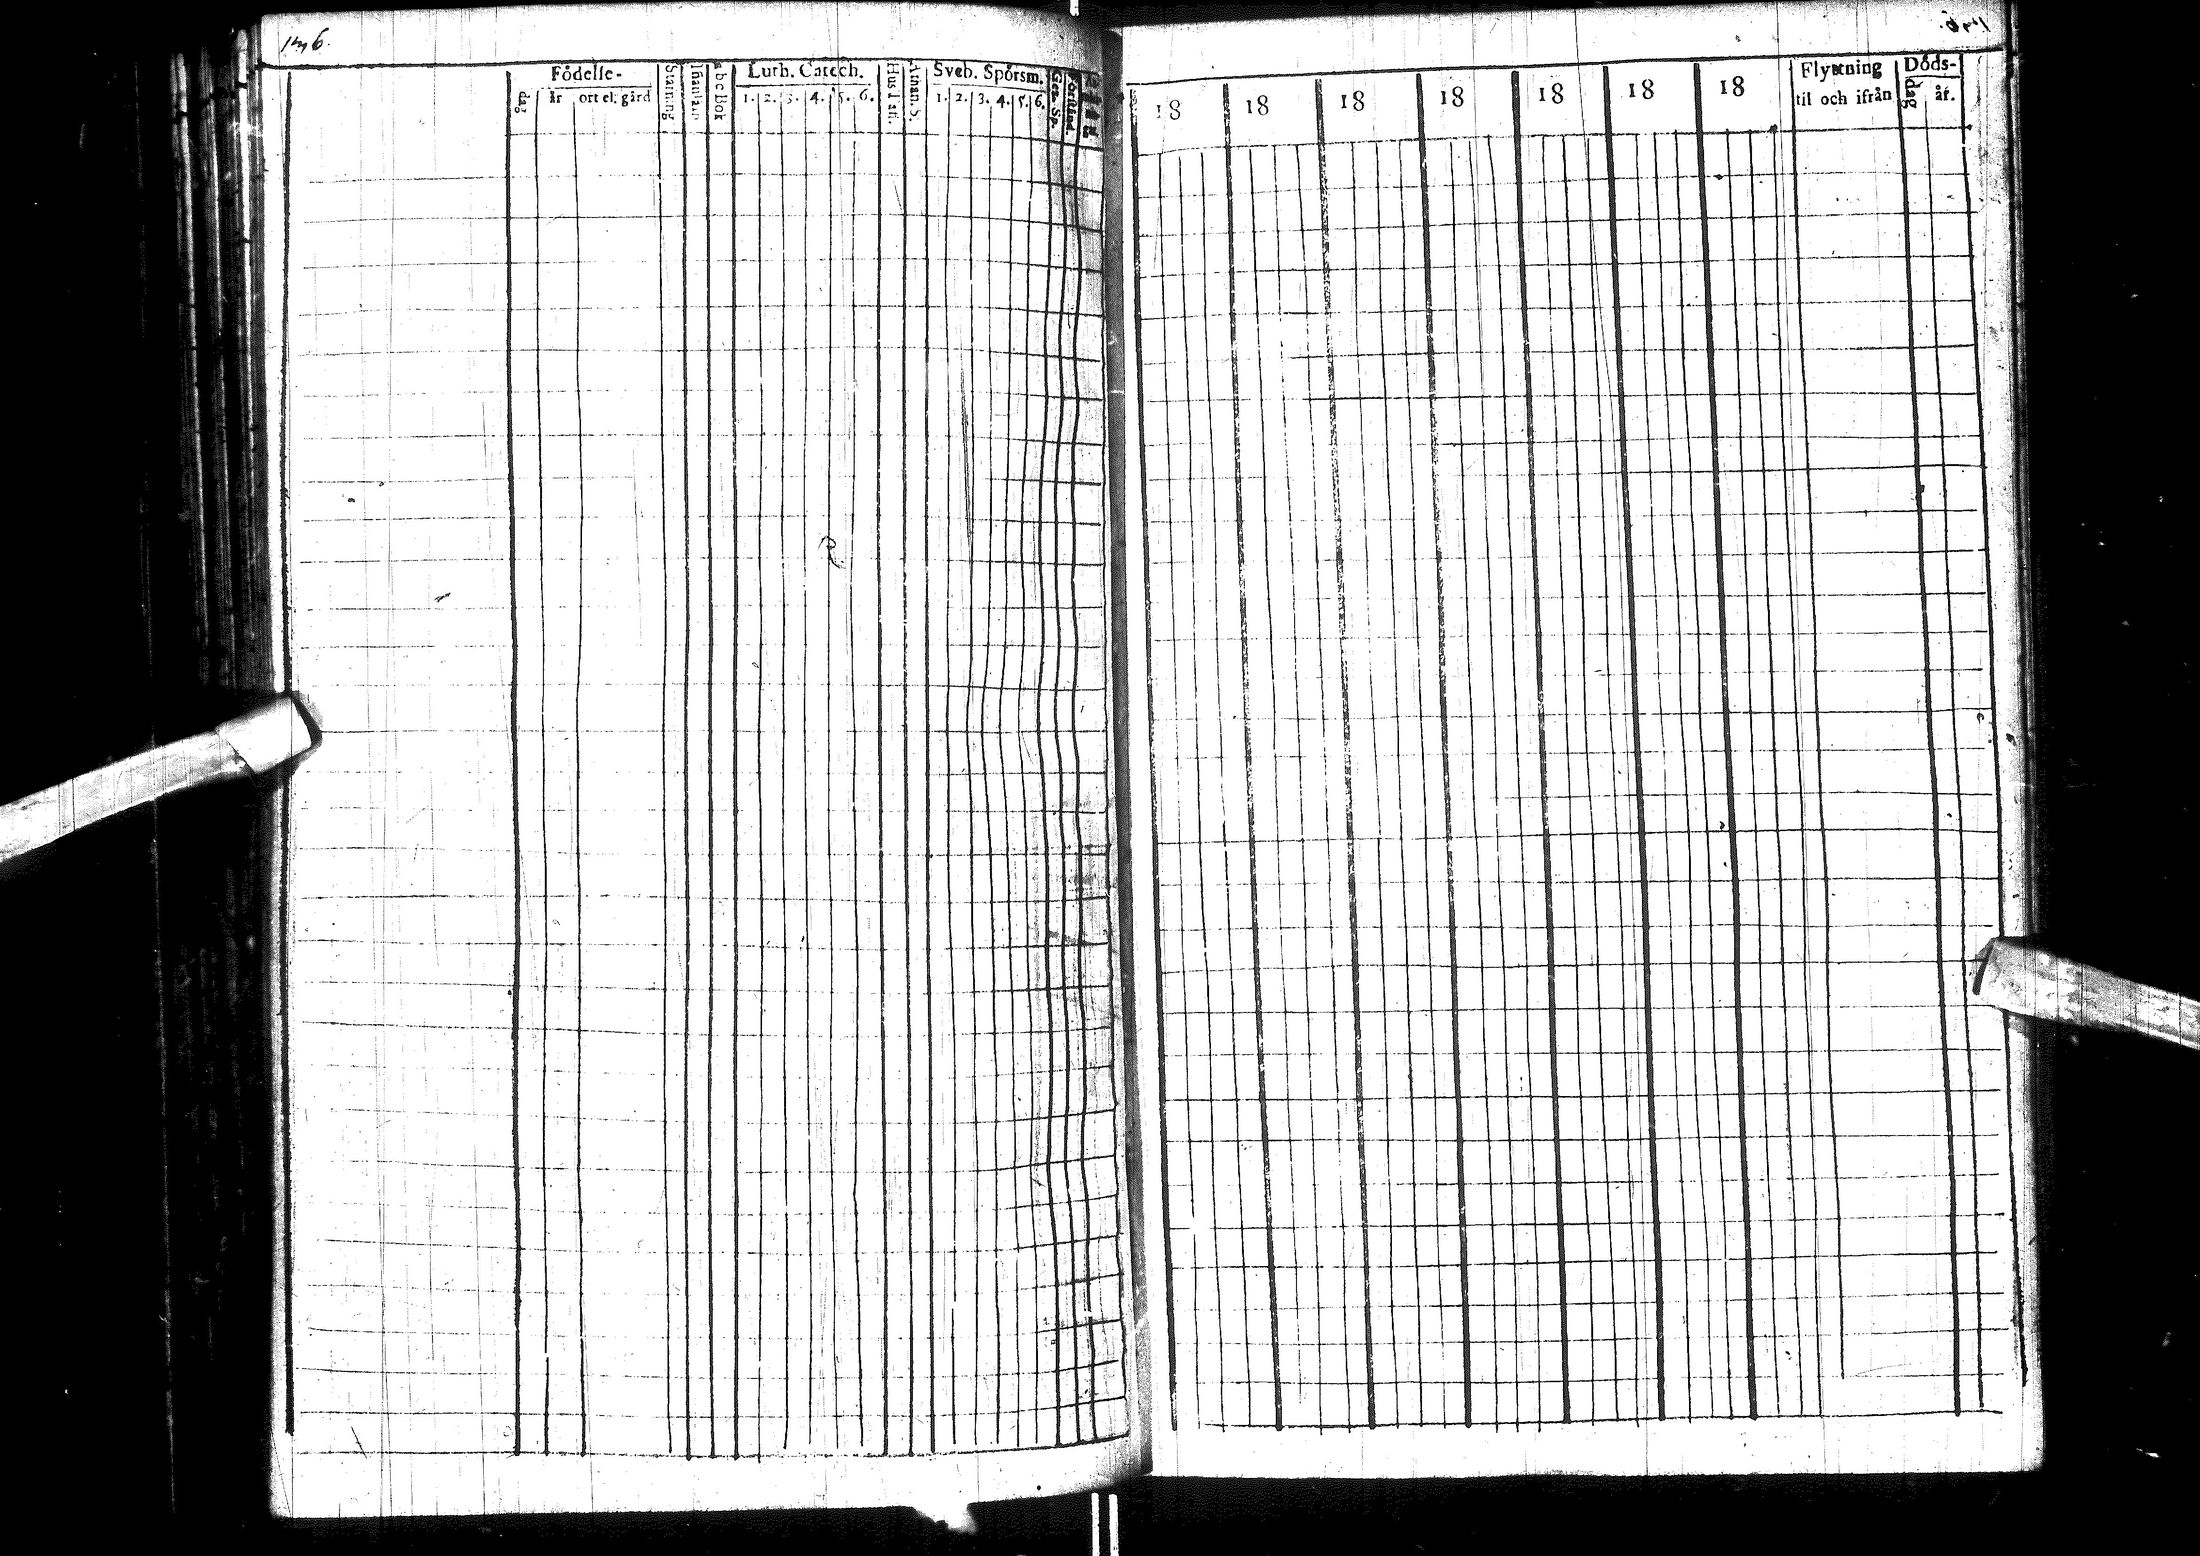 Födelse-
dag år ort el. gård
Stafn.ng
Inanlän
a b c Bok
Luth. Catech.
1. 2. 3. 4. 5. 6.
Hus l. afl.
Athan. S.
Sveb. Spörsm.
1. 2. 3. 4. 5. 6.
Gez. Sp.
Förstånd
18 18 18 18 18 18 18
Flyttning
til och ifrån
Döds-
dag år.